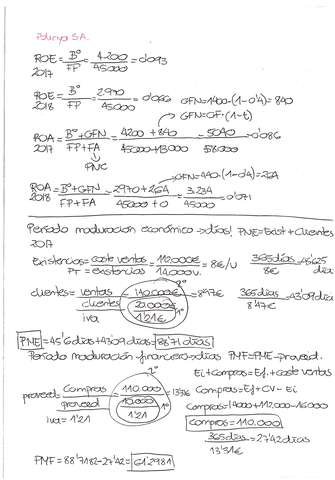 Polinya S.A.
ROE 2017 = Bº/FP = 4.200/45000 = 0'093
ROE 2018 = Bº/FP = 2.970/45.000 = 0'066 GFN=1400·(1-0'4) = 840
GFN=GF·(1-t)
ROA 2017 = Bº+GFN/FP+FA = 4200 + 840/45000+13000 = 5040/58.000 = 0'086
PNC
GFN=440·(1-0'4)=264
ROA 2018 = Bº+GFN/FP+FA = 2970+264/45000+0 = 3.234/45000 = 0'071
Período maduración económico → días! PME=Exist+Clientes
2017
Existencias = coste ventas/PT = existencias = 112.000€/14.000u. = 8€/u 365 días/8€ = 45'625 días
clientes = ventas/clientes/iva = 140.000€/20.000€/1'21€ = 8'47€ 365 días/8'47€ = 43'09 días
2º
1º
PME = 45'6 días + 43'09 días = 88'71 días
Período maduración financiero → días PMF=PME-proveed.
2º
Ei + compras = Ef. + coste ventas
proveed = Compras/proveed/iva = 1'21 = 110.000/10.000/1'21 = 13'31€ Compras = Ef + CV - Ei
1º
Compras = 14000 + 112.000 - 16000
Compras = 110.000
365 días/13'31€ = 27'42 días
PMF = 88'7182 - 27'42 = 61'2981